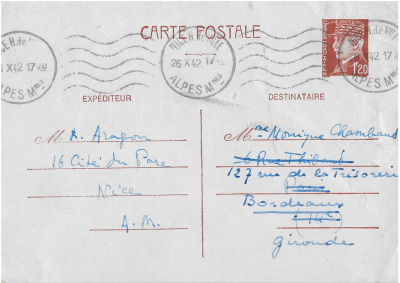 CARTE POSTALE
NICE H. de VILLE
26 X 42 17
ALPES Mmes
1f20
EXPÉDITEUR
M. A. Aragon
16 Cité du Parc
Nice
A. M.
DESTINATAIRE
Mme Monique Chambaud
6 Rue Thibaud
127 rue de la Trésorerie
Paris
Bordeaux
14e
Gironde